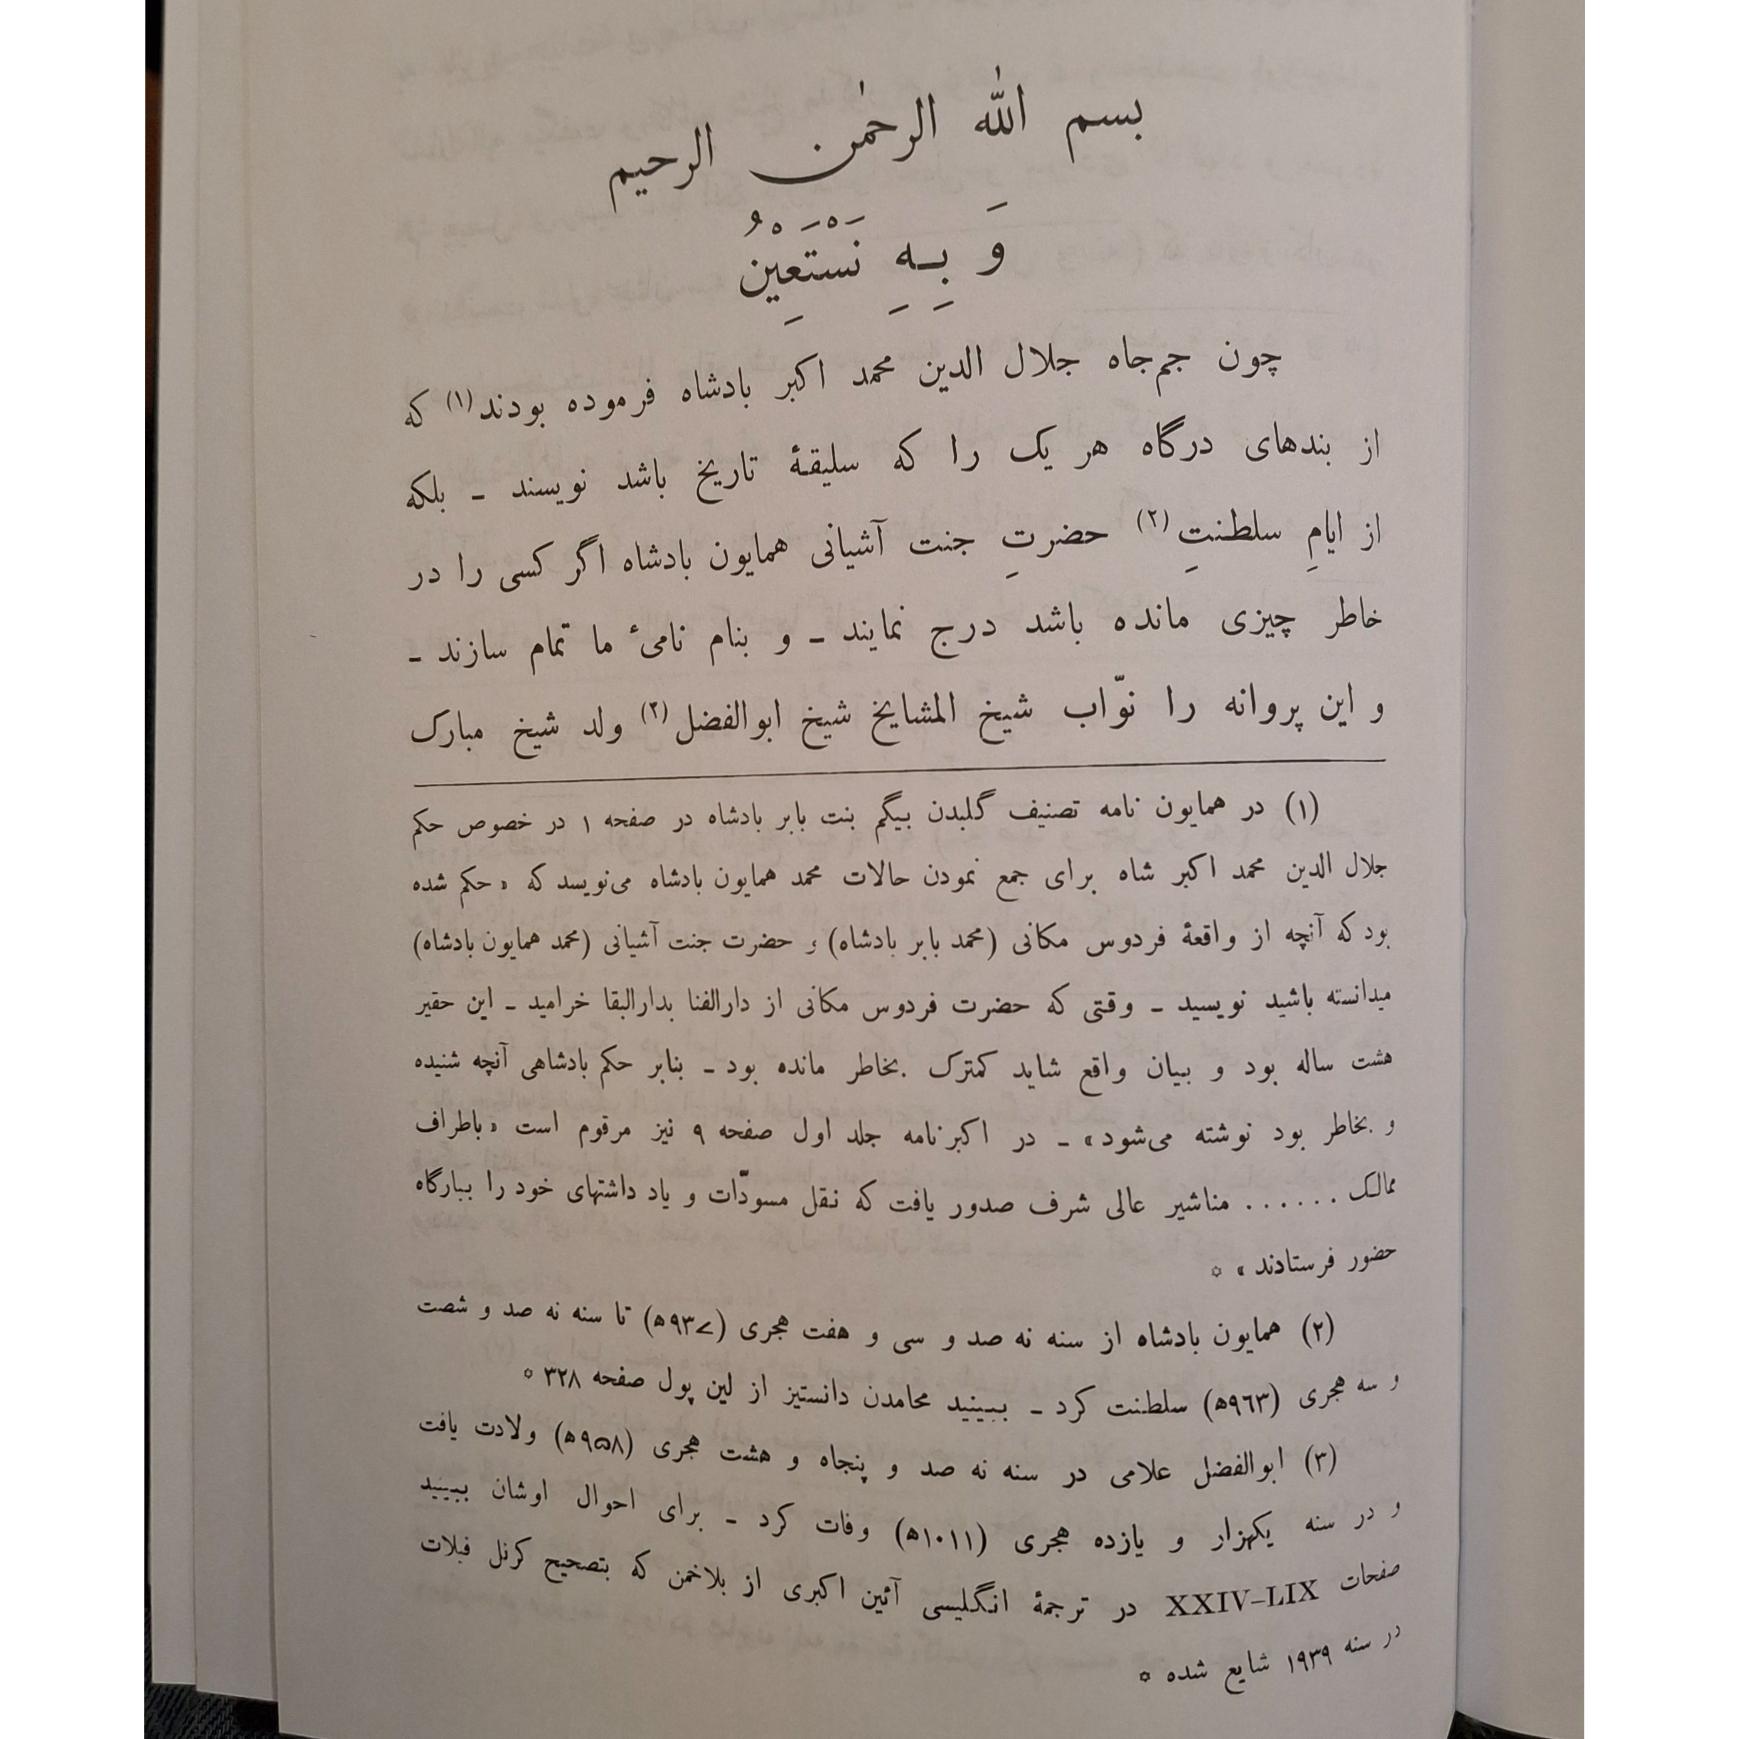 بسم اللّٰه الرحمٰن الرحیم
وَ بِهِ نَسْتَعِیْنُ
چون جم‌جاه جلال الدین محمد اکبر بادشاه فرموده بودند(۱) که
از بندهای درگاه هر یک را که سلیقهٔ تاریخ باشد نویسند ـ بلکه
از ایامِ سلطنتِ(۲) حضرتِ جنت آشیانی همایون بادشاه اگر کسی را در
خاطر چیزی مانده باشد درج نمایند ـ و بنام نامیٔ ما تمام سازند ـ
و این پروانه را نوّاب شیخ المشایخ شیخ ابوالفضل(۳) ولد شیخ مبارک
(۱) در همایون نامه تصنیف گلبدن بیگم بنت بابر بادشاه در صفحه ۱ در خصوص حکم
جلال الدین محمد اکبر شاه برای جمع نمودن حالات محمد همایون بادشاه می‌نویسد که «حکم شده
بود که آنچه از واقعهٔ فردوس مکانی (محمد بابر بادشاه) و حضرت جنت آشیانی (محمد همایون بادشاه)
میدانسته باشید نویسید ـ وقتی که حضرت فردوس مکانی از دارالفنا بدارالبقا خرامید ـ این حقیر
هشت ساله بود و بیان واقع شاید کمترک بخاطر مانده بود ـ بنابر حکم بادشاهی آنچه شنیده
و بخاطر بود نوشته می‌شود» ـ در اکبرنامه جلد اول صفحه ۹ نیز مرقوم است «باطراف
ممالک ...... مناشیر عالی شرف صدور یافت که نقل مسودّات و یاد داشتهای خود را ببارگاه
حضور فرستادند» *
(۲) همایون بادشاه از سنه نه صد و سی و هفت هجری (۹۳۷ه) تا سنه نه صد و شصت
و سه هجری (۹۶۳ه) سلطنت کرد ـ ببینید محامدن دانستیز از لین پول صفحه ۳۲۸ *
(۳) ابوالفضل علامی در سنه نه صد و پنجاه و هشت هجری (۹۵۸ه) ولادت یافت
و در سنه یکهزار و یازده هجری (۱۰۱۱ه) وفات کرد ـ برای احوال اوشان ببینید
صفحات XXIV–LIX در ترجمهٔ انگلیسی آئین اکبری از بلاخمن که بتصحیح کرنل فیلات
در سنه ۱۹۳۹ شایع شده *